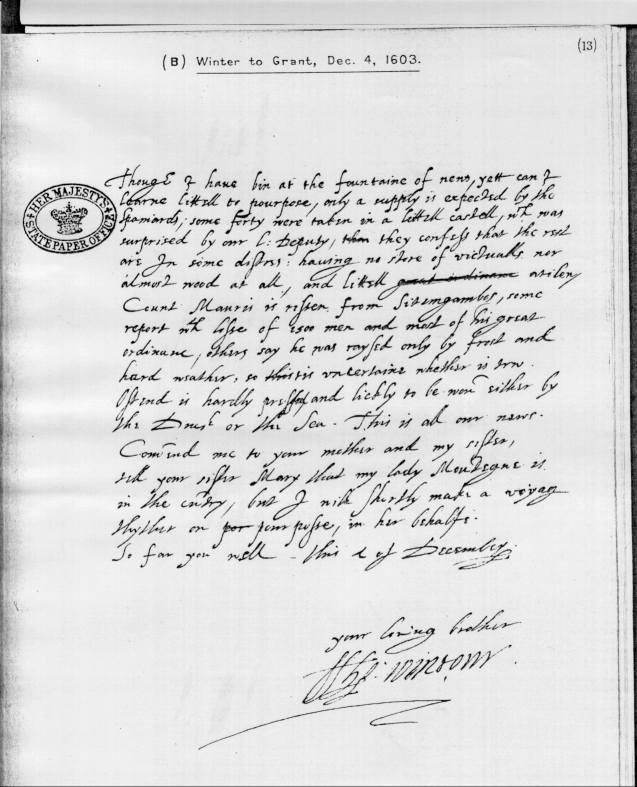 (13)
(B) Winter to Grant, Dec. 4, 1603.
HER MAJESTY'S STATE PAPER OFFICE
Though I haue bin at the fountaine of news, yett can I
learne littell to pourpose, only a supply is expected by the
spaniards; some forty were taken in a littell castell, wch was
surprised by our L: Deputy, they confess that the rest
are In some distres: hauing no store of victualls nor
almost wood at all, and littell
Count Mauris is rissen from, some
report wth losse of 1500 men and most of his great
ordinanc, others say he was raysed only by frost and
hard weather, so this is vncertaine whether is trw.
Ostend is hardly pressed and lickly to be won either by
the or the Sea. This is all our news.
Comend me to your mother and my sister,
tell your sister Mary that my lady Montegue is
in the cntry, but I will shortly make a voyag
thyther on pourposse, in her behalfe.
So far you well - this of December.
your loving brother
wintour